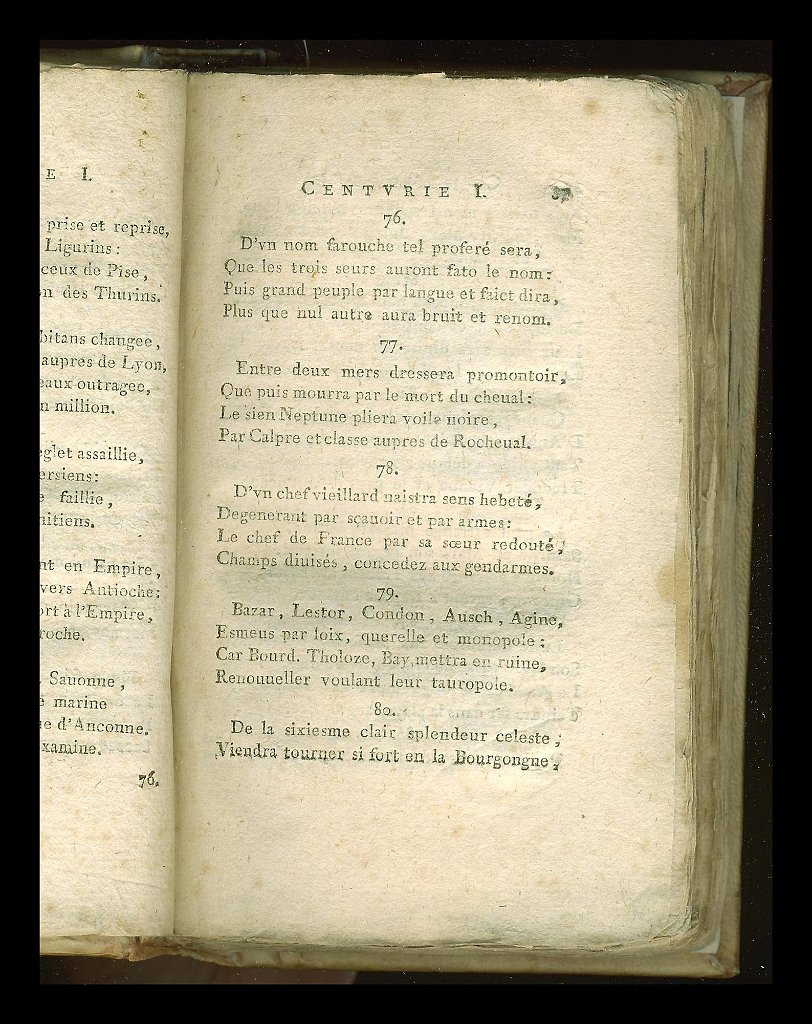 E I.
prise et reprise,
Ligurins :
ceux de Pise,
des Thurins.
bitans changee,
aupres de Lyon,
eaux outragee,
n million.
glet assaillie,
ersiens:
faillie,
nitiens.
nt en Empire,
vers Antioche:
ort à l'Empire,
roche.
Sauonne,
marine
e d'Anconne.
xamine.
76.
CENTVRIE I.
76.
D'vn nom farouche tel proferé sera,
Que les trois seurs auront fato le nom:
Puis grand peuple par langue et faict dira,
Plus que nul autre aura bruit et renom.
77.
Entre deux mers dressera promontoir,
Que puis mourra par le mort du cheual:
Le sien Neptune pliera voile noire,
Par Calpre et classe aupres de Rocheual.
78.
D'vn chef vieillard naistra sens hebeté,
Degenerant par sçauoir et par armes:
Le chef de France par sa sœur redouté,
Champs diuisés, concedez aux gendarmes.
79.
Bazar, Lestor, Condon, Ausch, Agine,
Esmeus par loix, querelle et monopole:
Car Bourd. Tholoze, Bay, mettra en ruine,
Renouueller voulant leur tauropole.
80.
De la sixiesme clair splendeur celeste,
Viendra tourner si fort en la Bourgongne,